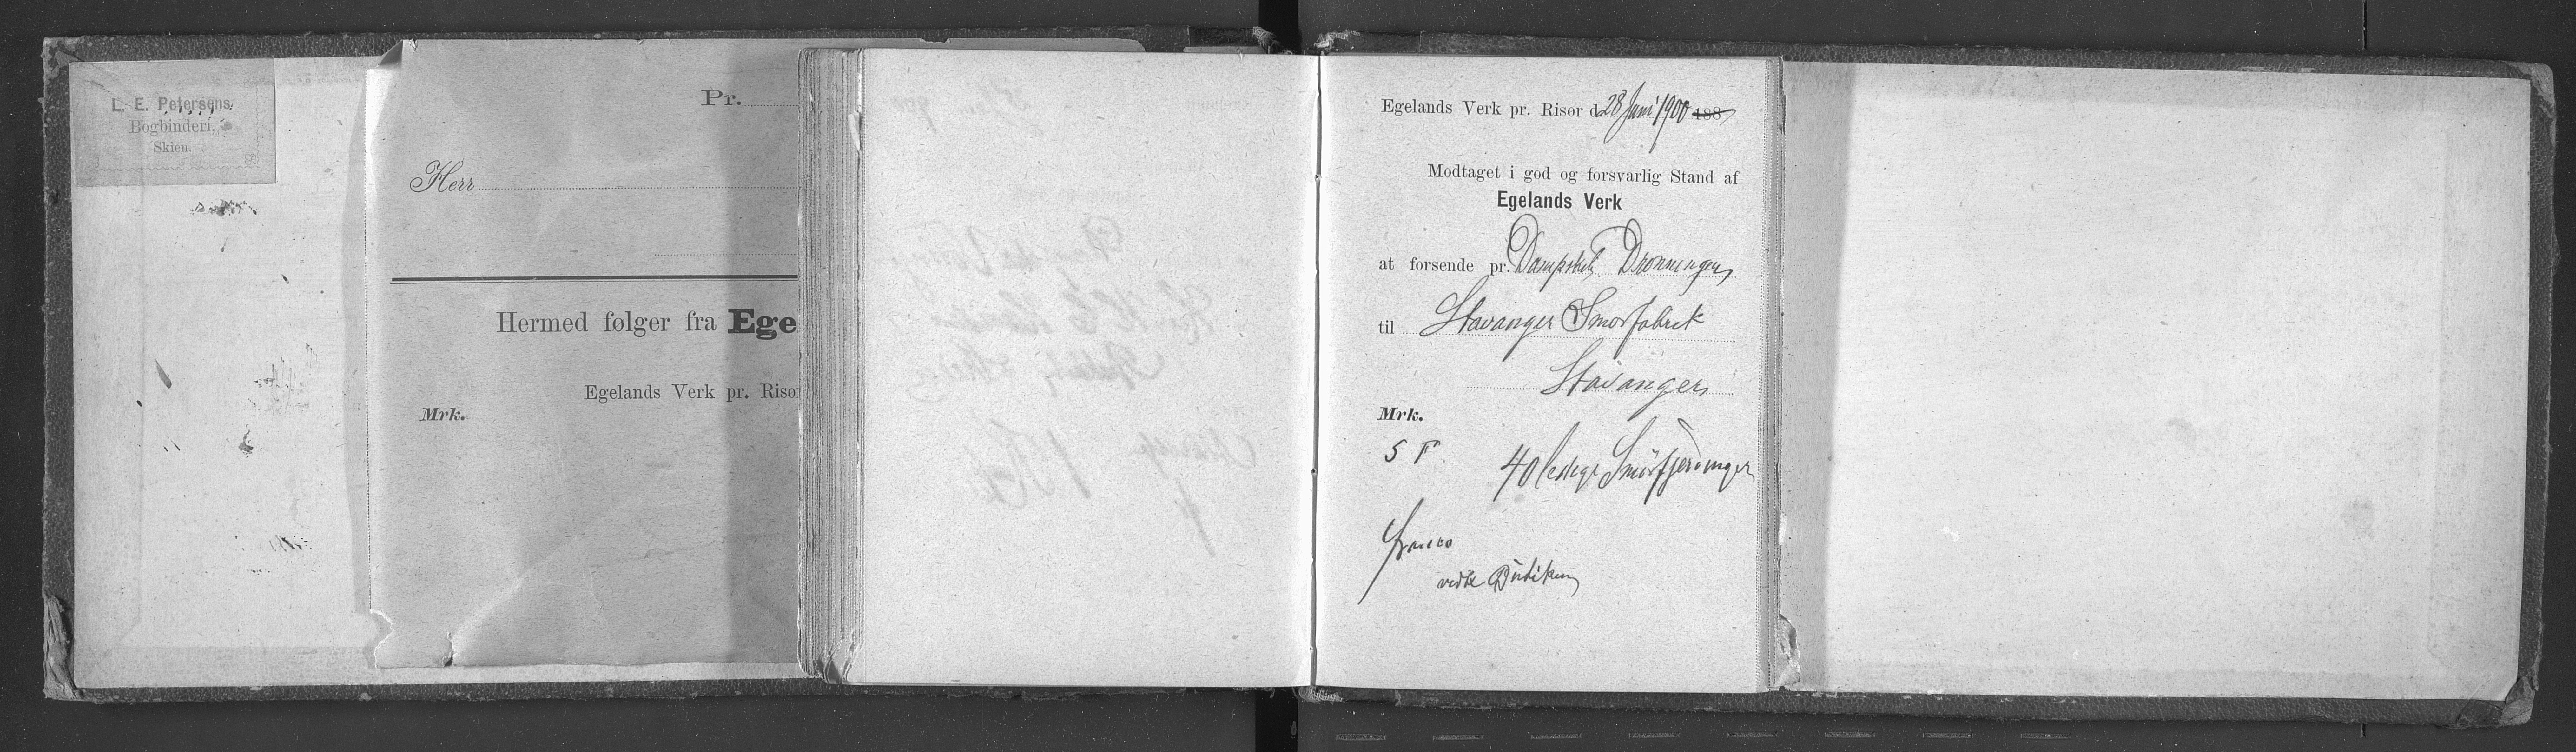 L. E. Petersens
Bogbinderi.
Skien.
Pr.
Herr
Hermed følger fra Ege
Egelands Verk pr. Risør
Mrk.
Egelands Verk pr. Risør d. 28 Juni 1900 188
Modtaget i god og forsvarlig Stand af
Egelands Verk
at forsende pr. Dampskib Dronningen
til Stavanger Smørfabrik
Stavanger
Mrk.
S F 40 ledige Smørfjerdinger
franco